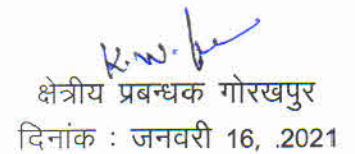 क्षेत्रीय प्रबन्धक गोरखपुर
दिनांक : जनवरी 16, .2021